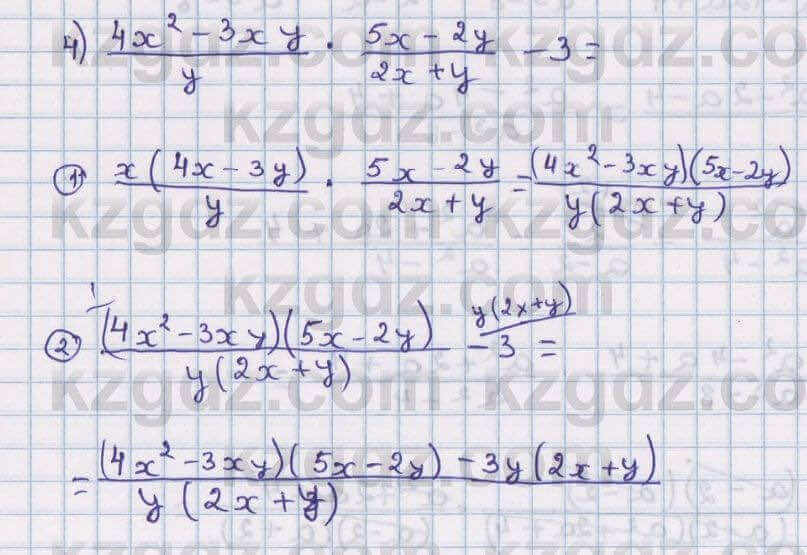 4) (4x² - 3xy)/y · (5x - 2y)/(2x + y) - 3 =
① x(4x - 3y)/y · (5x - 2y)/(2x + y) = (4x² - 3xy)(5x - 2y)/y(2x + y)
② ¹⁄(4x² - 3xy)(5x - 2y)/y(2x + y) - 3 ^y(2x+y) =
= ((4x² - 3xy)(5x - 2y) - 3y(2x + y))/y(2x + y)
kzgdz.com
kzgdz.com
kzgdz.com
kzgdz.com
kzgdz.com
kzgdz.com
kzgdz.com